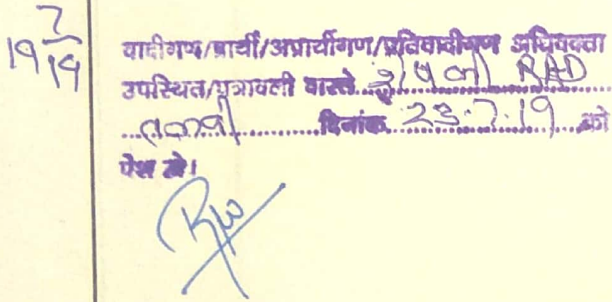 19 7/19
वादीगण/प्रार्थी/अप्रार्थीगण/प्रतिवादीगण अधिवक्ता
उपस्थित/पत्रावली वास्ते शेष जी RAD
तलबी दिनांक 23.7.19 को
पेश हो।